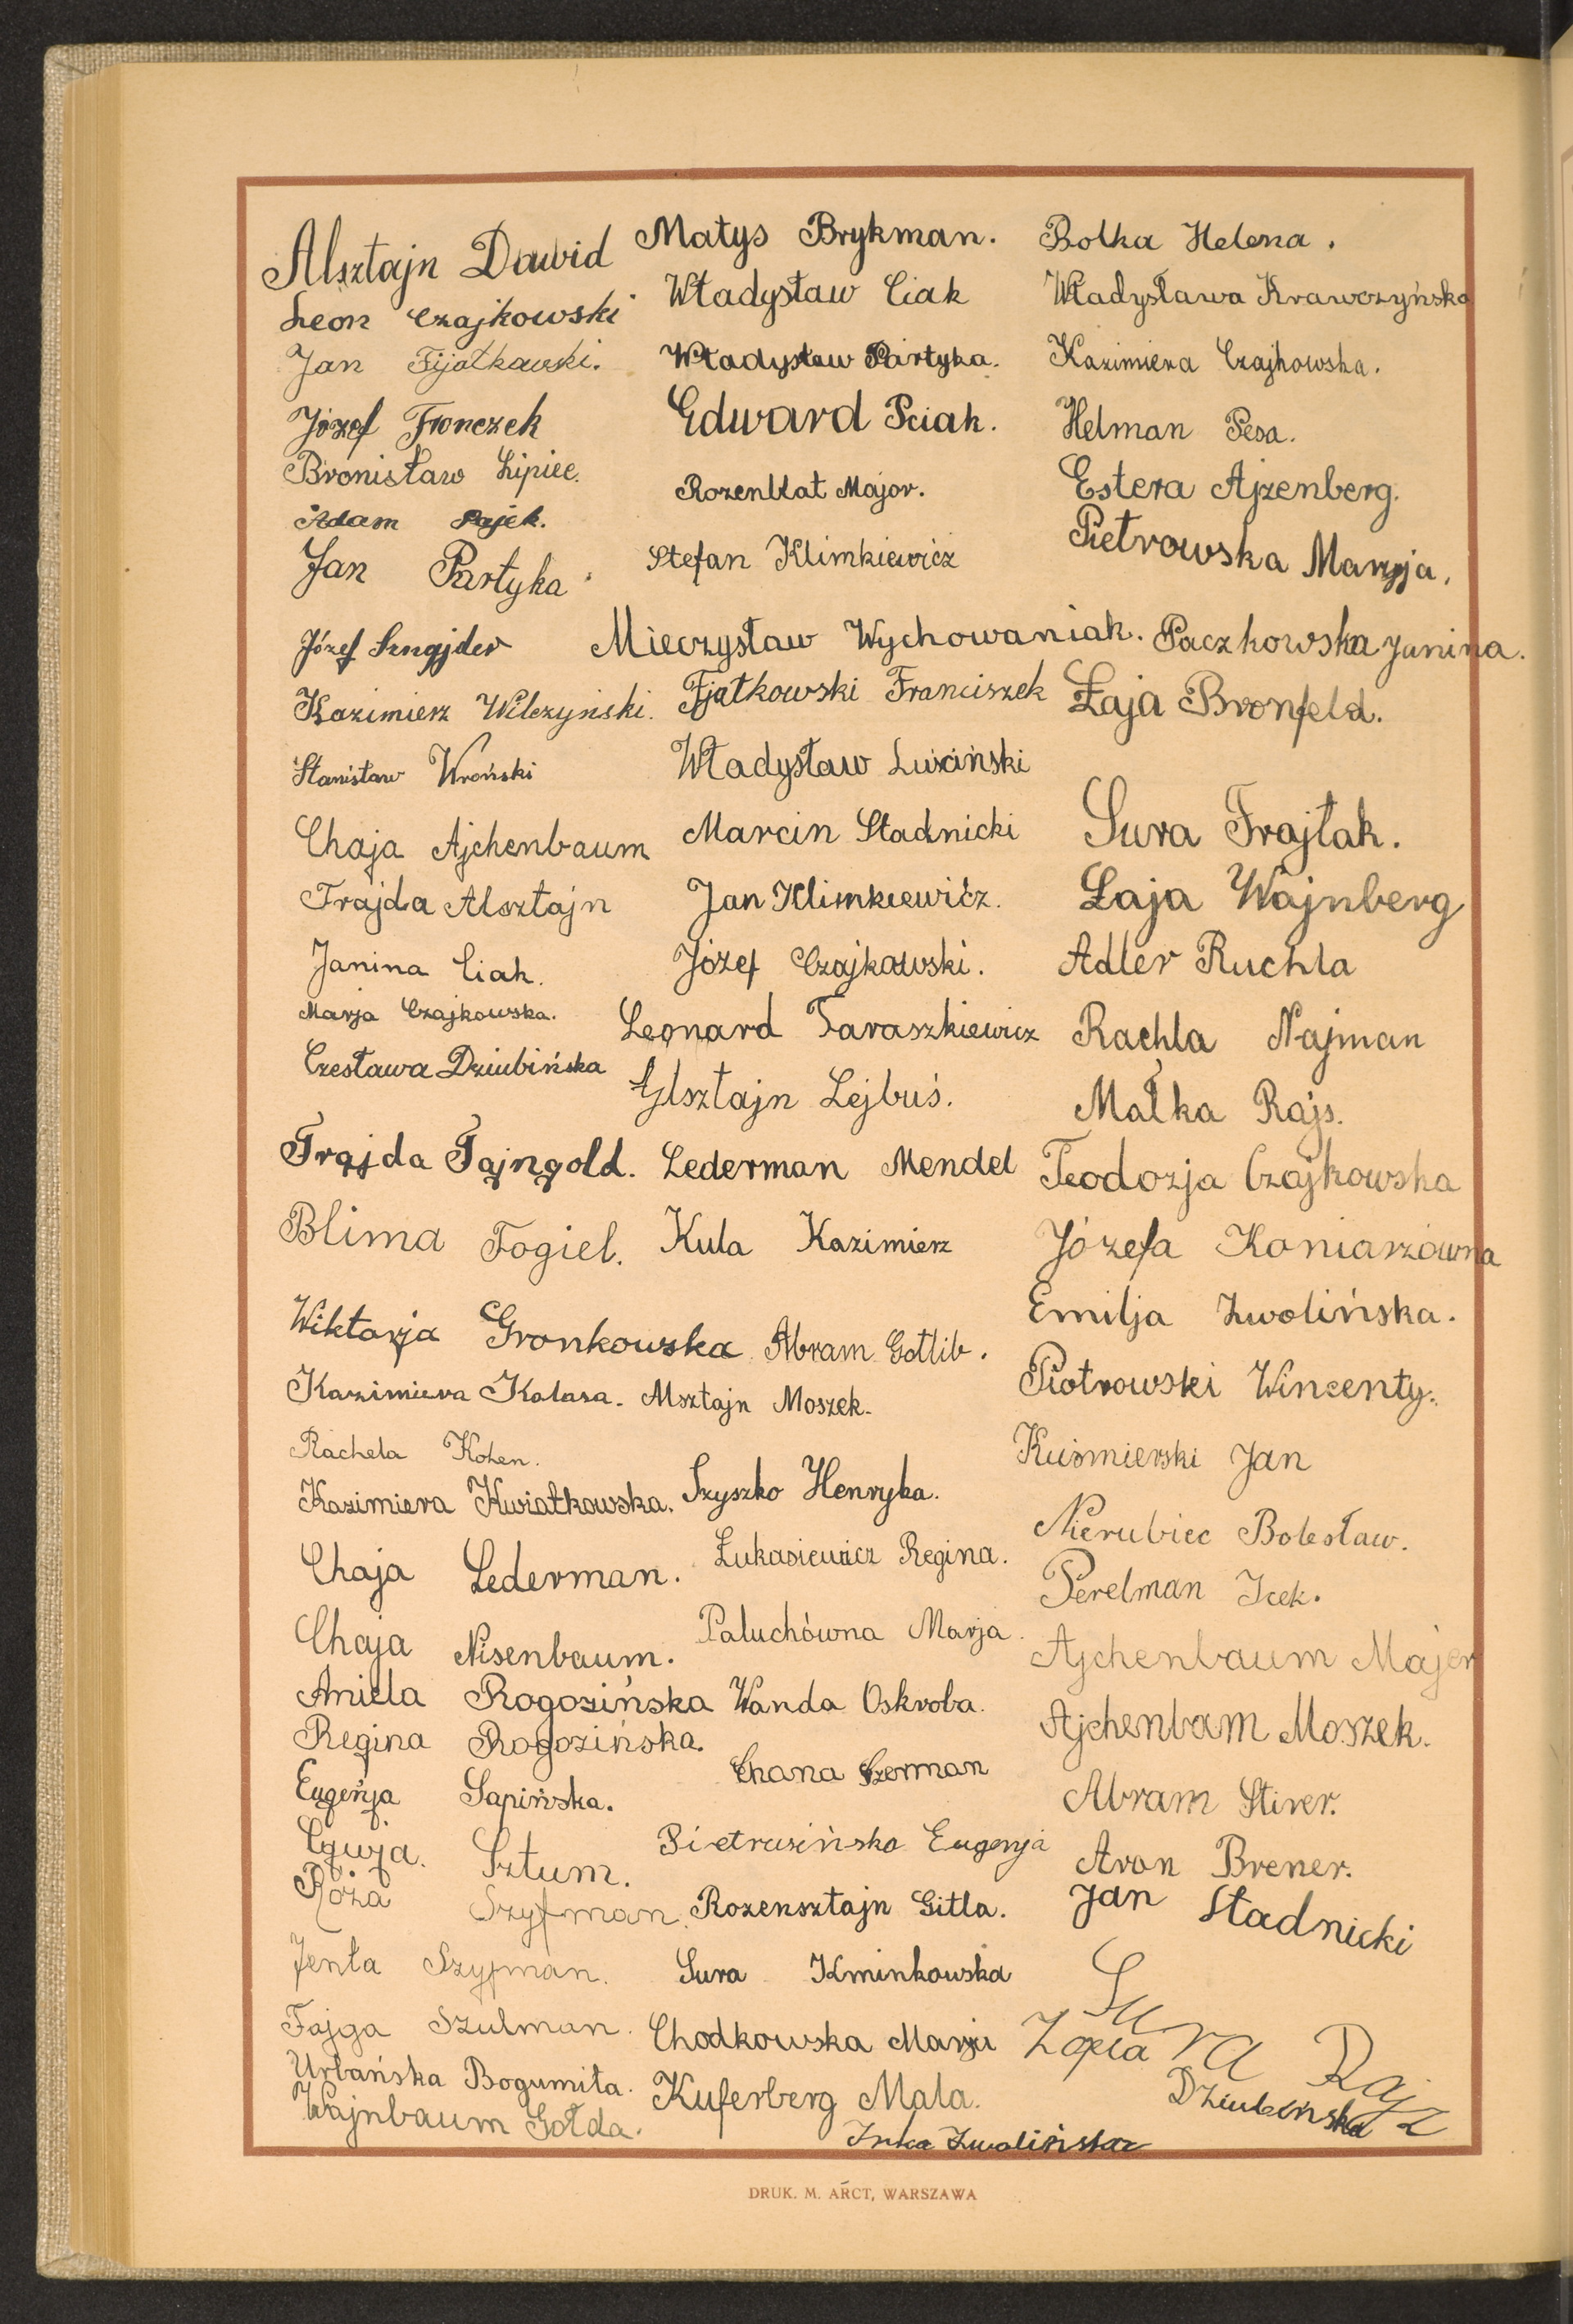 Alsztajn Dawid
Leon Czajkowski
Jan Fijałkowski.
Józef Fronczek
Bronisław Lipiec.
Adam Pajek.
Jan Partyka
Józef Sznajder
Kazimierz Wilczyński.
Stanisław Wroński
Chaja Ajchenbaum
Frajda Alsztajn
Janina Ciak.
Marja Czajkowska.
Czesława Dziubińska
Frajda Fajngold.
Blima Fogiel.
Wiktorja Gronkowska
Kazimiera Kalasa.
Rachela Kohen.
Kazimiera Kwiatkowska.
Chaja Lederman.
Chaja Nisenbaum.
Aniela Rogozińska
Regina Rogozińska.
Eugenja Sapińska.
Cywja. Sztum.
Róża Szyfman.
Jenta Szyfman.
Fajga Szulman.
Urbańska Bogumiła.
Wajnbaum Gołda.
Matys Brykman.
Władysław Ciak
Władysław Partyka.
Edward Pciak.
Rozenblat Major.
Stefan Klimkiewicz
Mieczysław Wychowaniak.
Fjatkowski Franciszek
Władysław Luściński
Marcin Stadnicki
Jan Klimkiewicz.
Józef Czajkowski.
Leonard Taraszkiewicz
Glsztajn Lejbuś.
Lederman Mendel
Kula Kazimierz
Abram Gotlib.
Alsztajn Moszek.
Szyszko Henryka.
Łukasiewicz Regina.
Paluchówna Marja.
Wanda Oskroba.
Chana Szerman
Pietrusińska Eugenja
Rozensztajn Gitla.
Sura Kminkowska
Chodkowska Marja
Kuferberg Mala.
Inka Zwolińska
Rolka Helena.
Władysława Krawczyńska
Kazimiera Czajkowska.
Helman Pesa.
Estera Ajzenberg.
Pietrowska Marja.
Paczkowska Janina.
Łaja Bronfeld.
Sura Frajtak.
Łaja Wajnberg
Adler Ruchla
Rachla Najman
Małka Rajs.
Teodozja Czajkowska
Józefa Koniarzówna
Emilja Zwolińska.
Piotrowski Wincenty.
Kuśmierski Jan
Nierubiec Bolesław.
Perelman Icek.
Ajchenbaum Majer
Ajchenbam Moszek.
Abram Stiwer.
Aron Brener.
Jan Stadnicki
Sura Rajz
Zofia Dziubińska
DRUK. M. ARCT, WARSZAWA